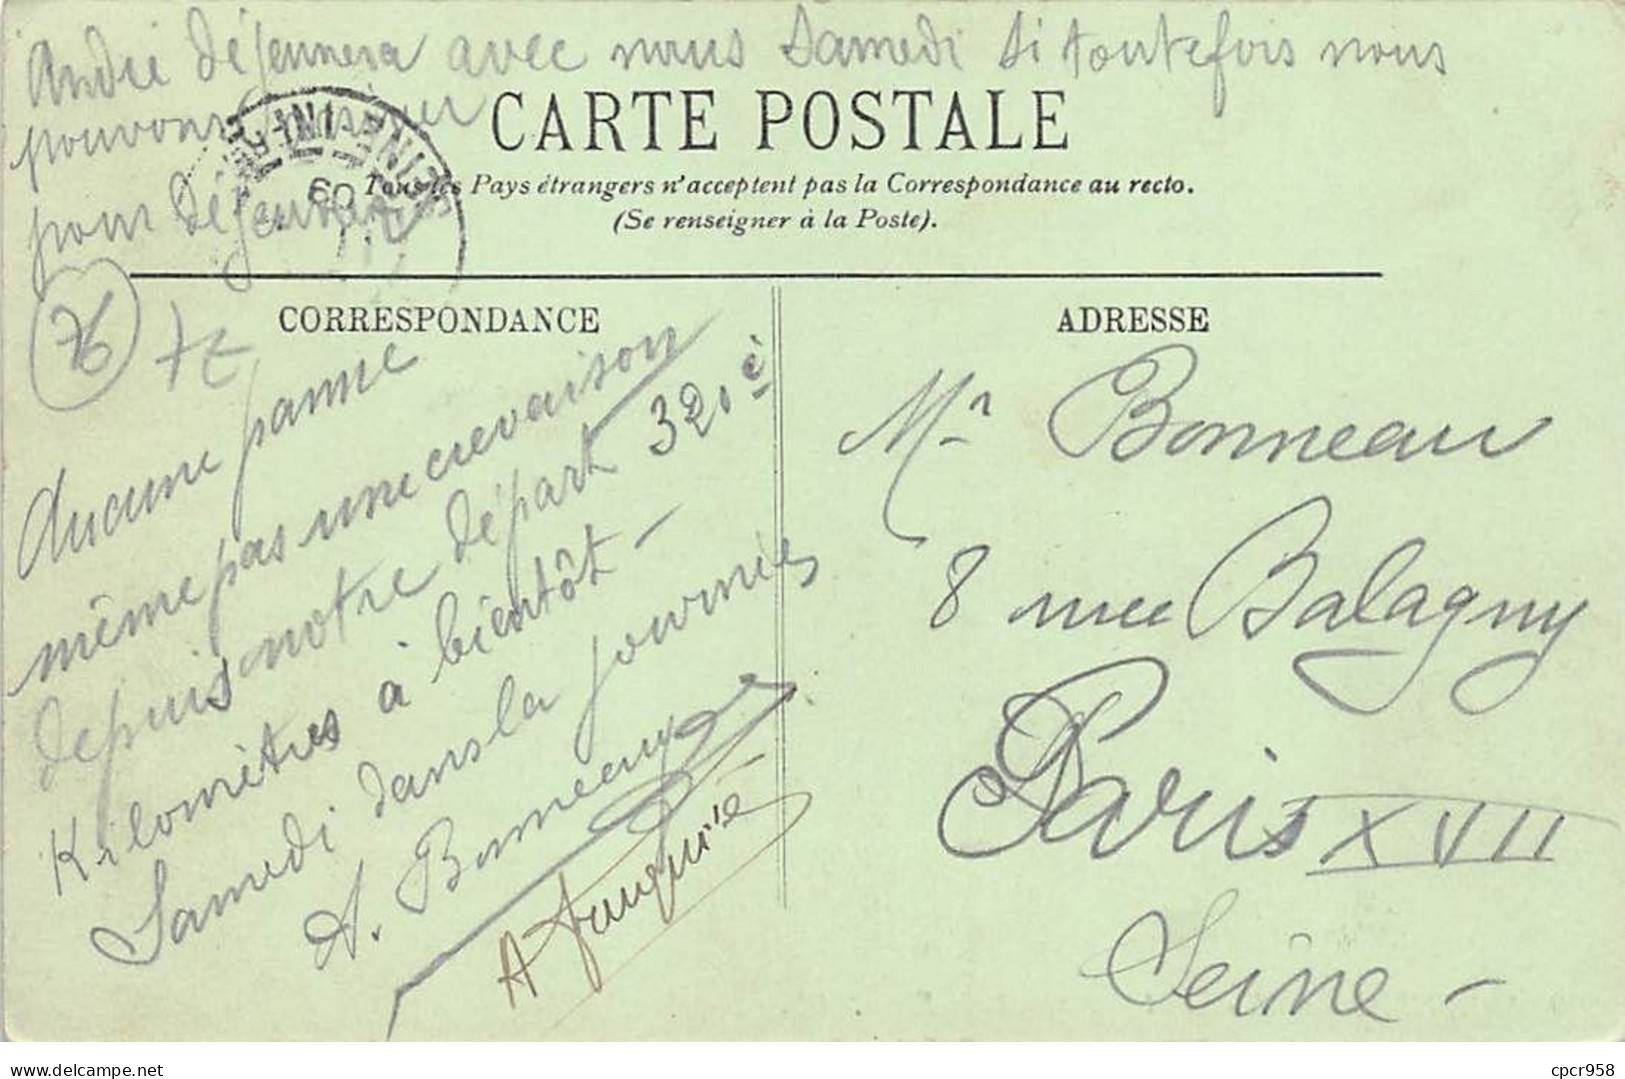 André déjeunera avec nous Samedi si toutefois nous
pouvons arriver
pour déjeuner
CARTE POSTALE
Tous les Pays étrangers n'acceptent pas la Correspondance au recto.
(Se renseigner à la Poste).
SEINE-INFRE
09
76
72
CORRESPONDANCE
Aucune panne
même pas une crevaison
depuis notre départ 320 è
Kilomètres à bientôt -
Samedi dans la journée
A. Bonneau
A Fouquié
ADRESSE
Mr Bonneau
8 rue Balagny
Paris XVII
Seine -
cpcr958